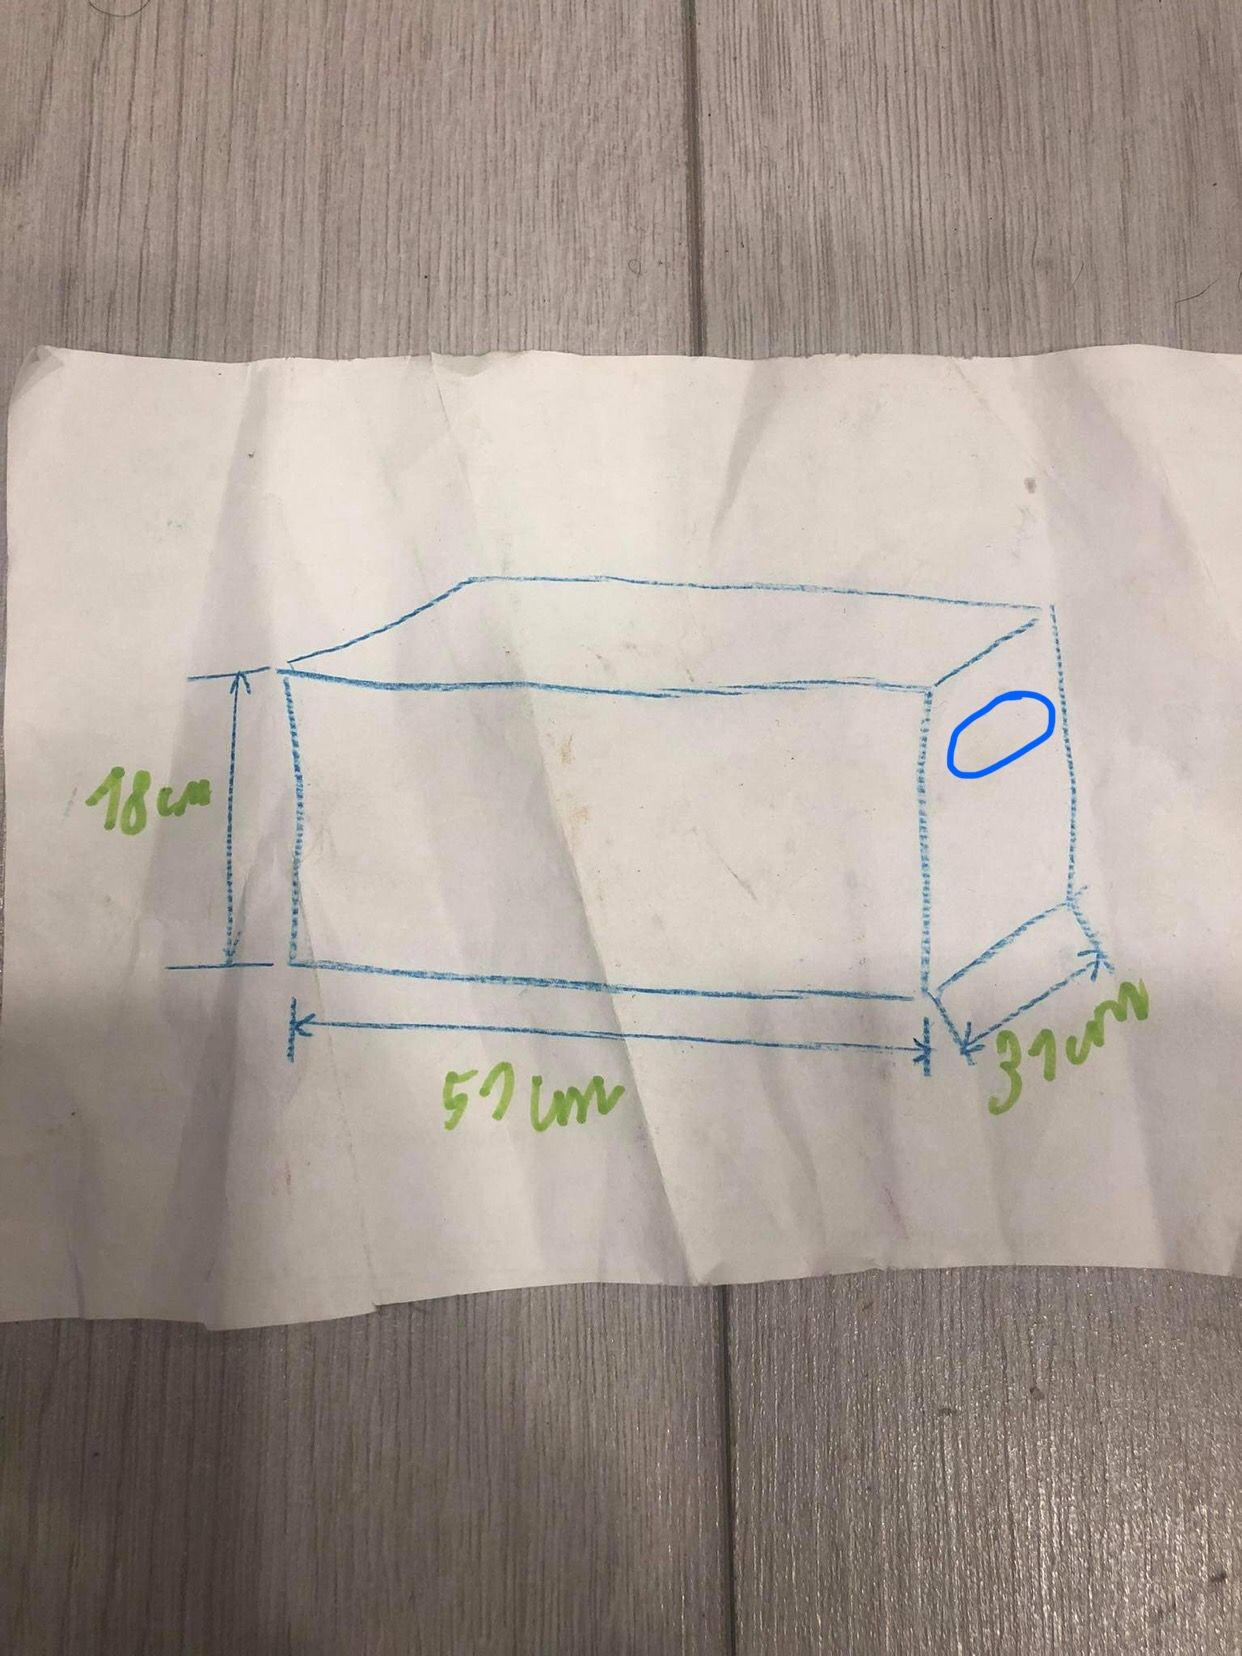 18cm
51cm
31cm